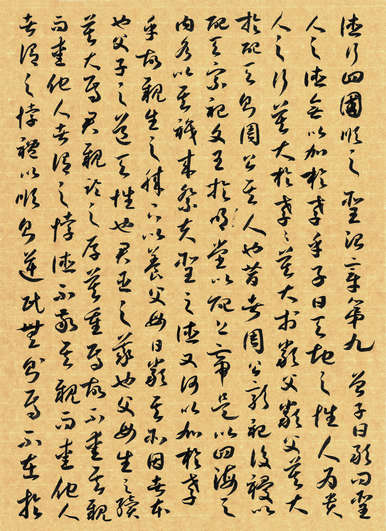 德行四國順之 聖治章第九 曾子曰敢問聖
人之德無以加於孝乎子曰天地之性人為貴
人之行莫大於孝〻莫大於嚴父嚴父莫大
於配天則周公其人也昔者周公郊祀后稷以
配天宗祀文王於明堂以配上帝是以四海之
內各以其職來祭夫聖之德又何以加於孝
乎故親生之膝下以養父母日嚴其所因者本
也父子之道天性也君臣之義也父母生之續
莫大焉君親臨之厚莫重焉故不愛其親
而愛他人者謂之悖德不敬其親而愛他人
者謂之悖禮以順則逆民無則焉不在於